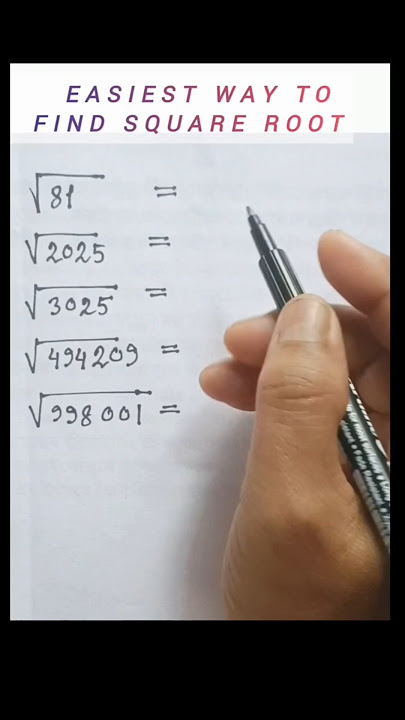 EASIEST WAY TO
FIND SQUARE ROOT
√81 =
√2025 =
√3025 =
√494209 =
√998001 =